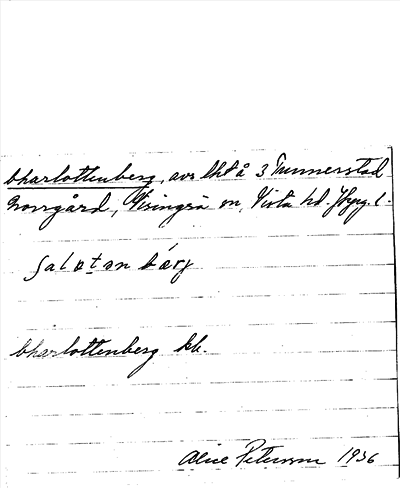 Charlottenberg, avs lht å 3 Tunnerstad
Norrgård, Visingsö sn, Vista hd. Jkpg. l.
ʃalotanbærj
Charlottenberg kb.
Alice Peterson 1936